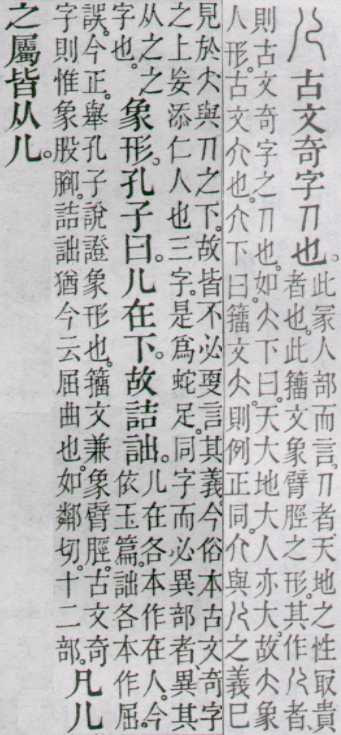 儿古文奇字人也。此冡人部而言。人者天地之性冣貴
者也。此籒文象臂脛之形。其作儿者、
則古文奇字之人也。如大下曰。天大地大人亦大。故大象
人形。古文亣也。亣下曰。籒文大。則例正同。亣與儿之義巳
見於大與人之下。故皆不必㪅言其義。今俗本古文奇字
之上妄添仁人也三字。是爲蛇足。同字而必異部者、異其
从之之
字也。
象形。孔子曰。儿在下。故詰詘。
儿在各本作在人。今
依玉篇。詘各本作屈。
誤。今正。舉孔子說證象形也。籒文兼象臂脛。古文奇
字則惟象股腳。詰詘猶今云屈曲也。如鄰切。十二部。
凡儿
之屬皆从儿。